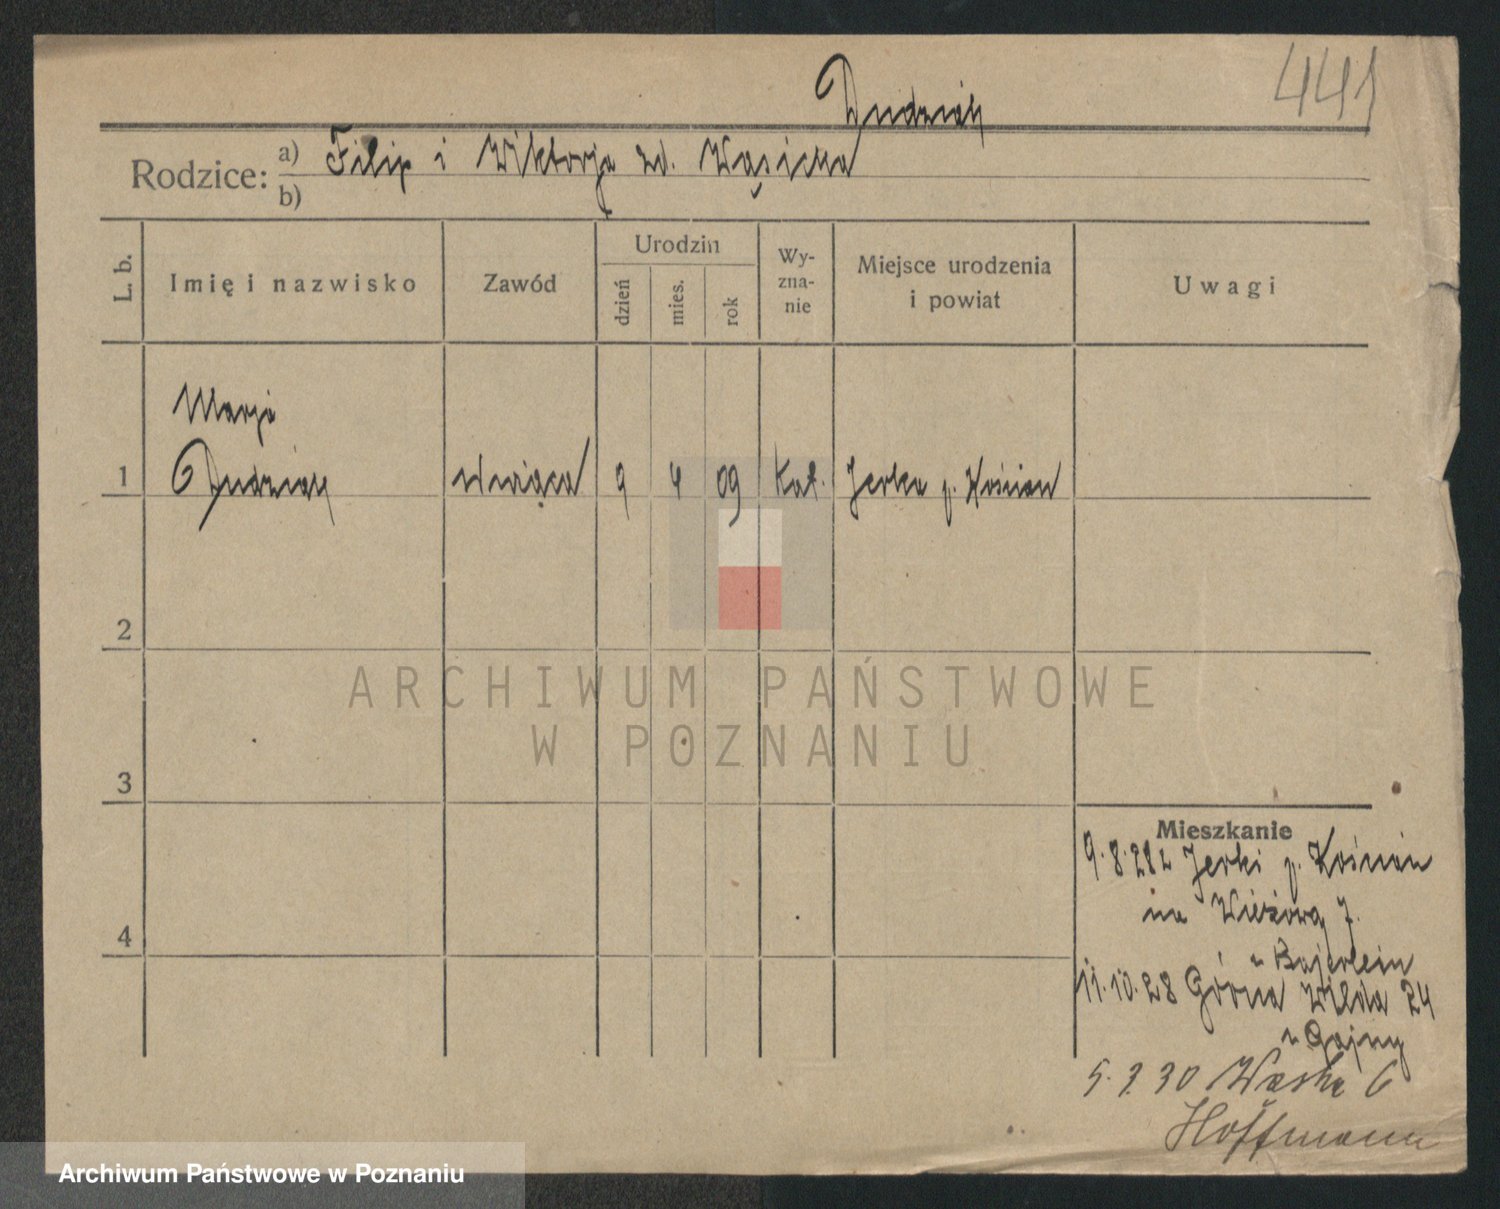 441
Dudziak
Rodzice: a) Filip i Wiktorja zd. Wąsicka
b)
L. b. Imię i nazwisko Zawód Urodzin dzień mies. rok Wy-zna-nie Miejsce urodzenia i powiat Uwagi
Marja
1 Dudziak służąca 9 4 09 kat. Jerka p. Kościan
2
3
4
Mieszkanie
9.8.28 z Jerki p. Kościan
na Wieżową 7.
u Bajerlein
11.10.28 Górna Wilda 24
u Gajny
5. 3. 30 Wąska 6
Hoffmann
ARCHIWUM PAŃSTWOWE
W POZNANIU
Archiwum Państwowe w Poznaniu